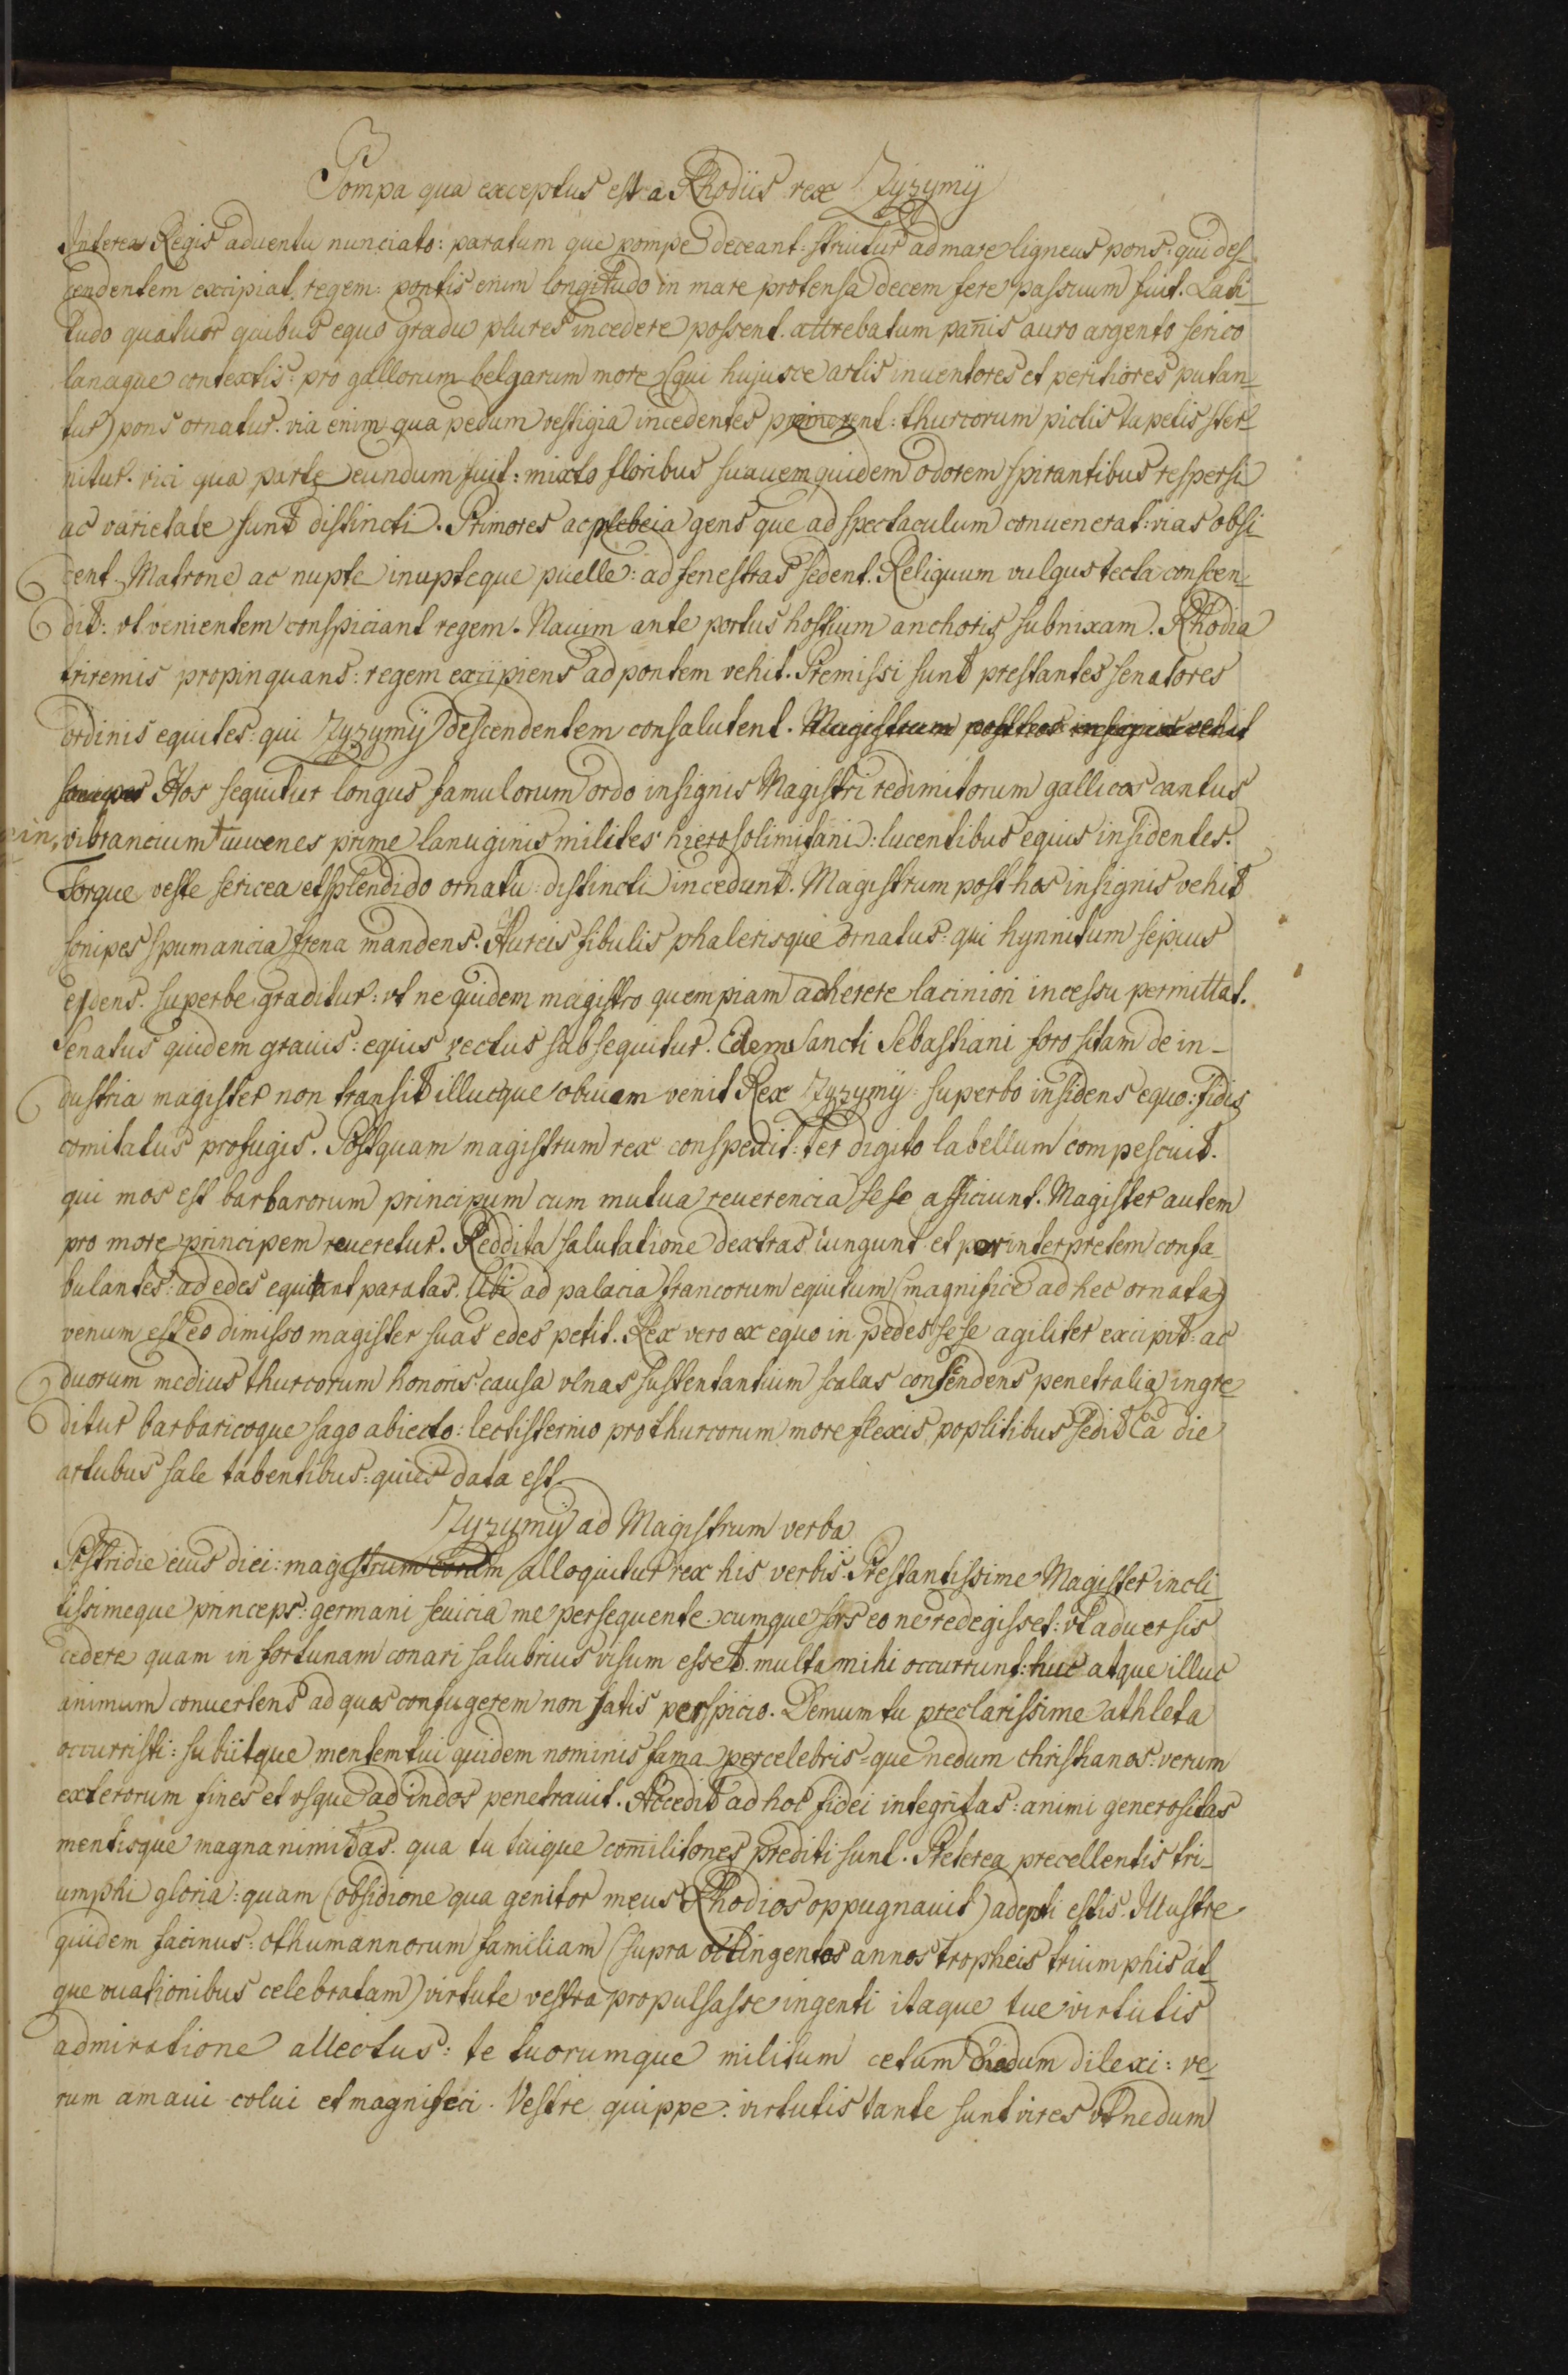 Pompa qua exceptus est a Rhodiis rex Zyzymÿ
Interea Regis aduentu nunciato: paratum que pompe deceant: struitur ad mare ligneus pons: qui des-
cendentem excipiat regem: pontis enim longitudo in mare protensa decem fere passuum fuit. Lati-
tudo quatuor quibus equo gradu plures incedere possent. attrebatum pañis auro argento serico
lanaque contextis: pro gallorum belgarum more (qui hujusce artis inuentores et peritiores putan-
tur) pons ornatur. via enim qua pedum vestigia incedentes : thurcorum pictis tapetis ster-
nitur. vici qua parte eundum fuit: mixto floribus suauem quidem odorem spirantibus respersi
ac varietate sunt distincti. Primores ac plebeia gens que ad spectaculum conuenerat: vias obsi-
dent. Matrone ac nupte inupteque puelle: ad fenestras sedent. Reliquum vulgus tecta conscen-
dit: vt venientem conspiciant regem. Nauim ante portus hostium anchoris subnixam. Rhodia
triremis propinquans: regem excipiens ad pontem vehit. Premissi sunt prestantes senatores
ordinis equites: qui Zyzymÿ descendentem consalutent. Magistrum post hos insignis vehit
sonipes Hos sequitur longus famulorum ordo insignis Magistri redimitorum gallicos cantus
in vibrancium iuuenes prime lanuginis milites hierosolimitani: lucentibus equis insidentes.
Torque veste sericea et splendido ornatu: distincti incedunt. Magistrum post hos insignis vehit
sonipes spumancia frena mandens. Aureis fibulis phalerisque ornatus: qui hynnitum sepius
edens. superbe graditur: vt ne quidem magistro quempiam adherere lacinion incessu permittat.
Senatus quidem grauis: equis vectus subsequitur. Edem Sancti Sebastiani foro sitam de in-
dustria magister non transit illucque obuiam venit Rex Zyzymÿ: superbo insidens equo: fidis
comitatus profugis. Postquam magistrum rex conspexit: ter digito labellum compescuit.
qui mos est barbarorum principum cum mutua reuerencia sese afficiunt. Magister autem
pro more principem reueretur. Reddita salutatione dextras iungunt et per interpretem confa-
bulantes: ad edes equitant paratas. Ubi ad palacia francorum equitum (magnifice ad hec ornata)
venum est eo dimisso magister suas edes petit. Rex vero ex equo in pedes sese agiliter excipit: ac
duorum medius thurcorum honoris causa vlnas sustentantium scalas conscendens penetralia ingre-
ditur barbaricoque sago abiecto: lectisternio pro thurcorum more flexis poplitibus sedit Ea die
artubus sale tabentibus: quies data est.
Zyzymÿ ad Magistrum verba
Postridie eius diei: magistrum coram alloquitur rex his verbis. Prestantissime Magister incli-
tissimeque princeps: germani seuicia me persequente. cumque sors eo ne redegisset: vt aduersis
cedere quam in fortunam conari salubrius visum esset. multa mihi occurrunt: huc atque illuc
animum conuertens ad quos confugerem non satis perspicio. Demum tu preclarissime athleta
occurristi: subiitque mentem tui quidem nominis fama percelebris: que nedum christianos: verum
exterorum fines et vsque ad indos penetrauit. Accedit ad hoc fidei integritas: animi generositas
mentisque magnanimitas. qua tu tuique com̄ilitones prediti sunt. Preterea precellentis tri-
umphi gloria: quam (obsidione qua genitor meus Rhodios oppugnauit) adepti estis. Illustre
quidem facinus: othumannorum familiam (supra octingentos annos tropheis triumphis at-
que ouationibus celebratam) virtute vestra propulsasse ingenti itaque tue virtutis
admiratione allectus: te tuorumque militum cetum nedum dilexi: ve-
rum amaui colui et magnifeci. Vestre quippe: virtutis tante sunt vires vt nedum